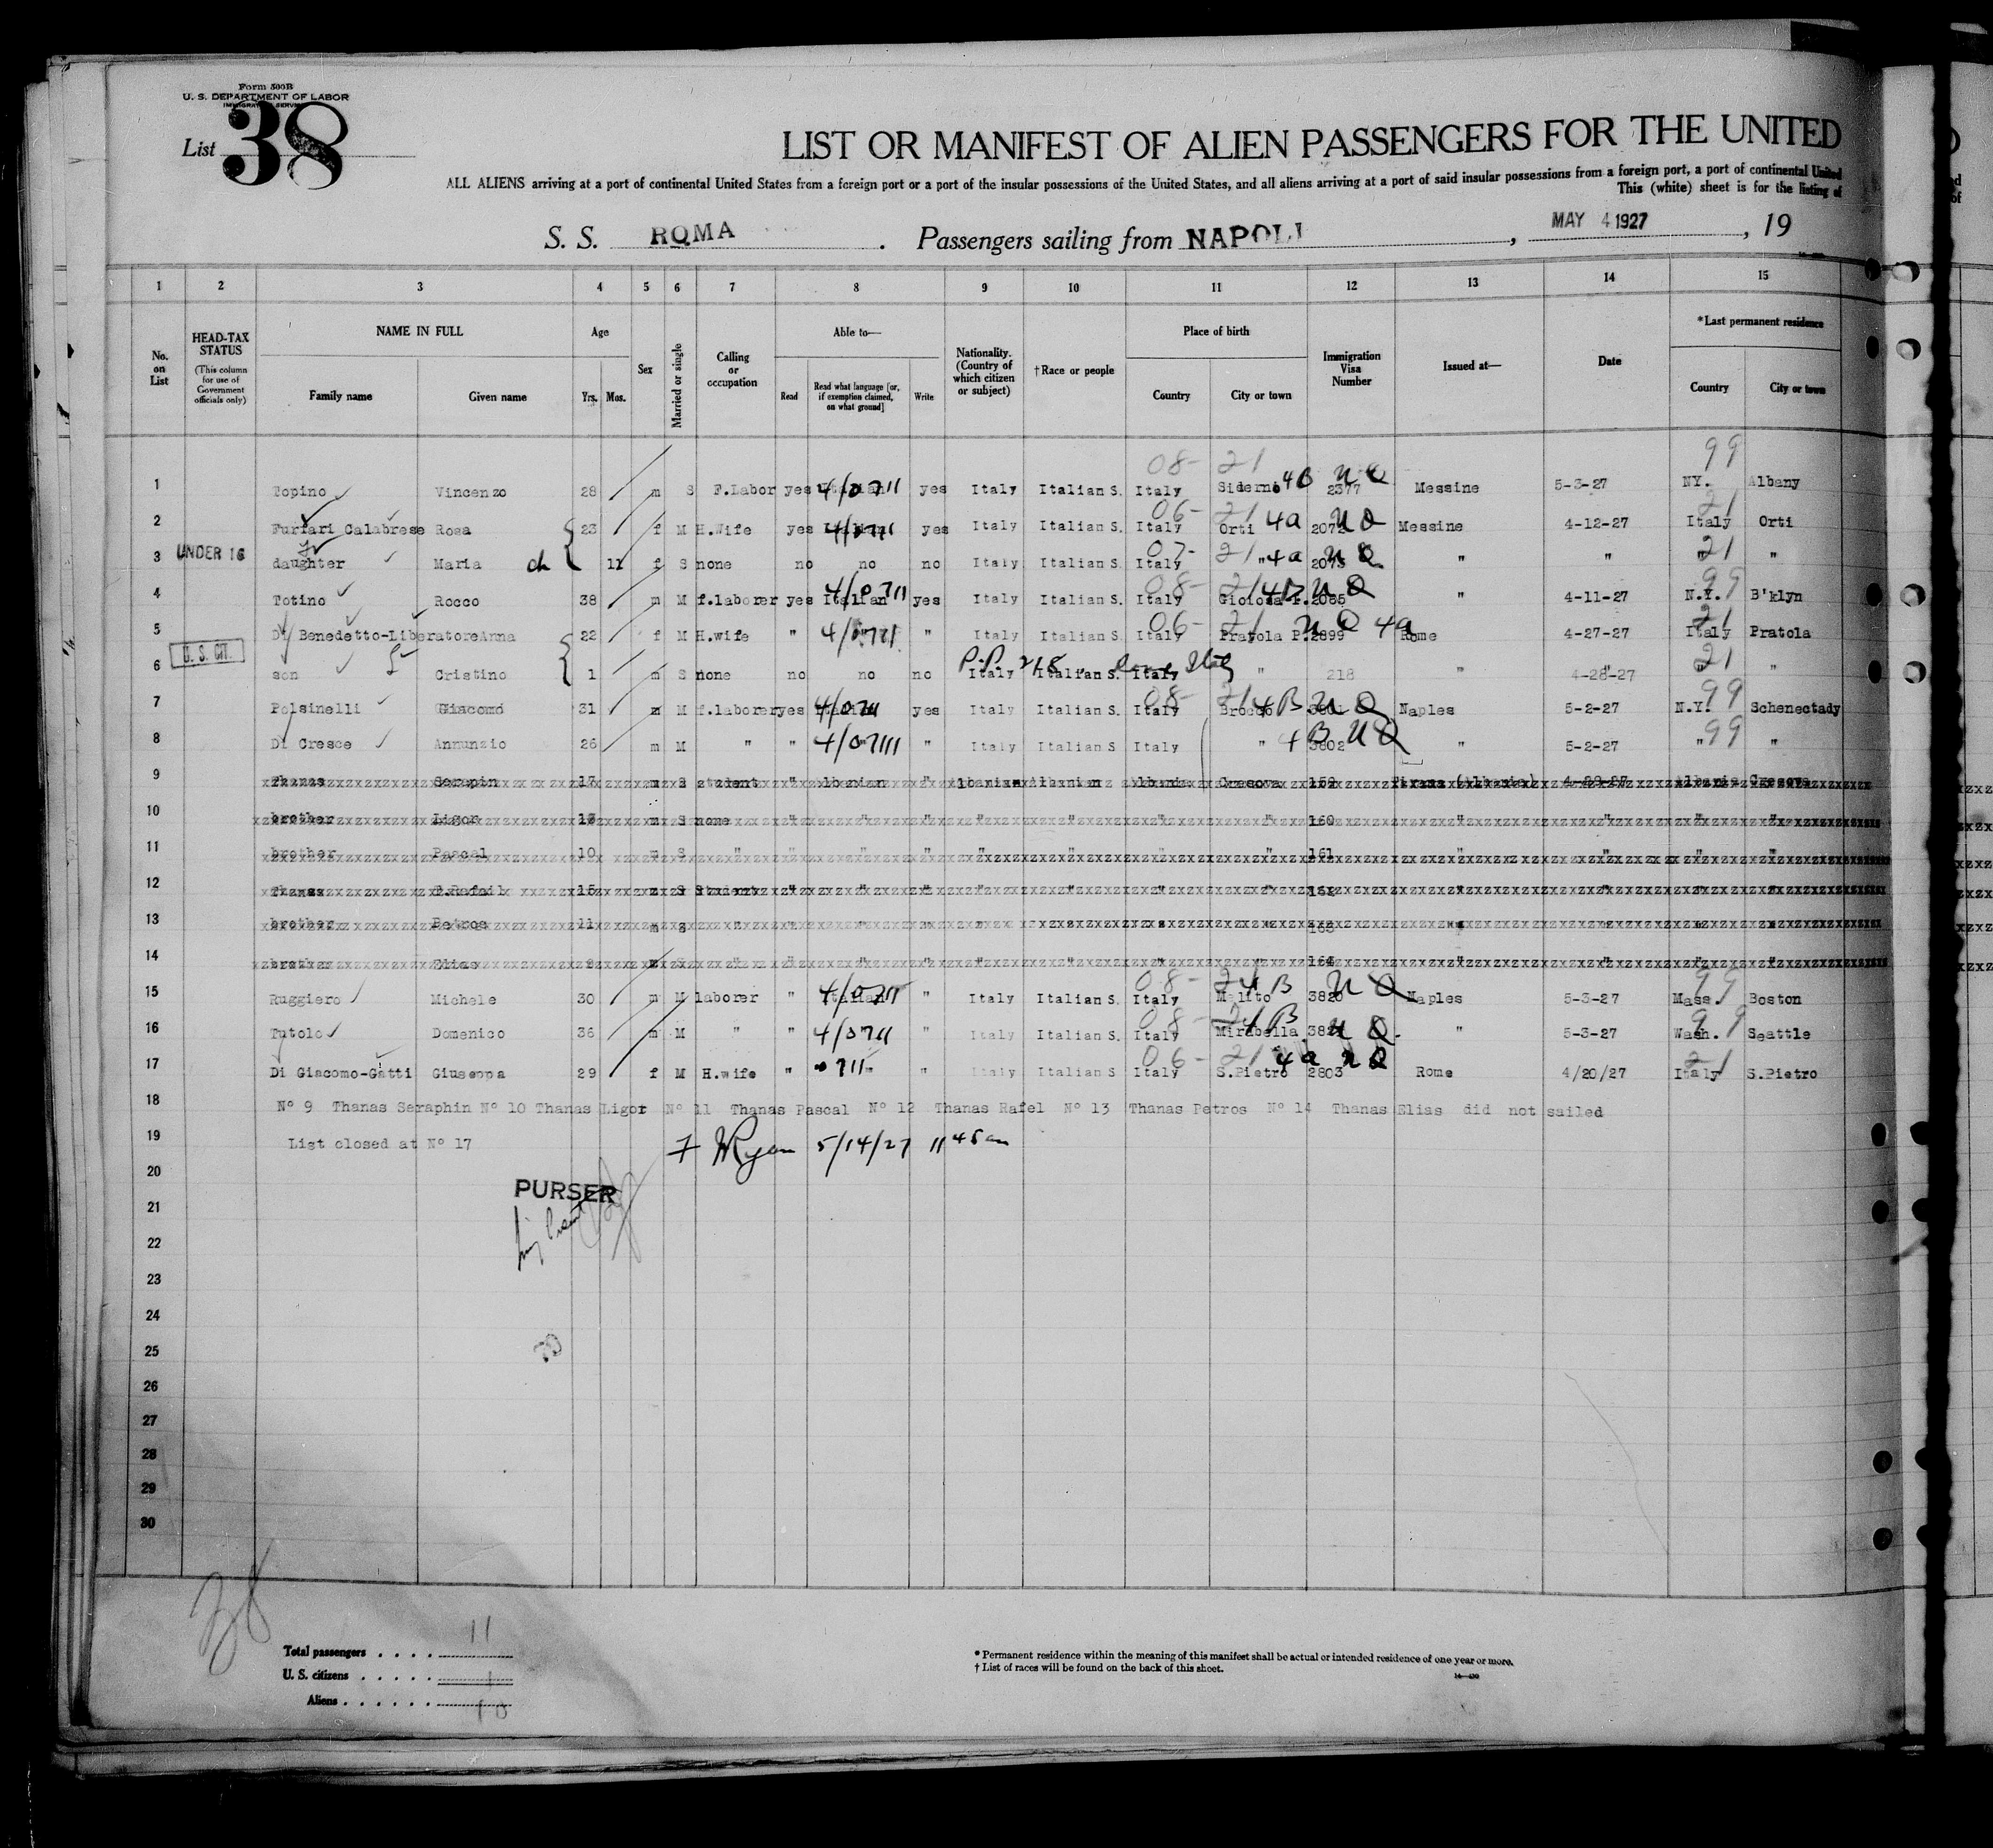 Form 500B
U. S. DEPARTMENT OF LABOR
IMMIGRATION SERVICE
List 38
LIST OR MANIFEST OF ALIEN PASSENGERS FOR THE UNITED
ALL ALIENS arriving at a port of continental United States from a foreign port or a port of the insular possessions of the United States, and all aliens arriving at a port of said insular possessions from a foreign port, a port of continental United
This (white) sheet is for the listing of
S. S. ROMA . Passengers sailing from NAPOLI , MAY 4 1927 , 19
1 2 3 4 5 6 7 8 9 10 11 12 13 14 15
No. on List
HEAD-TAX STATUS (This column for use of Government officials only)
NAME IN FULL Family name Given name
Age Yrs. Mos.
Sex
Married or single
Calling or occupation
Able to— Read Read what language [or, if exemption claimed, on what ground] Write
Nationality. (Country of which citizen or subject)
†Race or people
Place of birth Country City or town
Immigration Visa Number
Issued at—
Date
*Last permanent residence Country City or town
08- 21 99
1 Topino Vincenzo 28 m S F.Labor yes Italian 4/0711 yes Italy Italian S. Italy Siderno 4B 2377 NQ Messine 5-3-27 NY. Albany
06- 21 21
2 Furfari Calabrese Rosa 23 f M H.Wife yes yes Italy Italian S. Italy Orti 4a 2072 NQ Messine 4-12-27 Italy Orti
07- 21 21
3 UNDER 16 daughter Maria ch 11 f S none no no no Italy Italian S. Italy " 4a NQ " " " "
08- 99
4 Totino Rocco 38 m M f.laborer yes Italian 4/0711 yes Italy Italian S. Italy NQ " 4-11-27 N.Y. B'klyn
06- 21 21
5 Di Benedetto-Liberatore Anna 22 f M H.wife " " Italy Italian S. Italy Pratola P. 2899 NQ 4a Rome 4-27-27 Italy Pratola
P.P. 218 21
6 U. S. CIT. son Cristino 1 m S none no no no Italy Italian S. Italy " 218 " 4-28-27 " "
08- 99
7 Polsinelli Giacomo 31 m M f.laborer yes yes Italy Italian S. Italy Brocco 4B NQ Naples 5-2-27 N.Y. Schenectady
8 Di Cresce Annunzio 26 m M " " " Italy Italian S Italy " 4B 3802 NQ " 5-2-27 " 99 "
9 Thanas Serapin 17 m S student " Albanian " Albanian Albanian Albania Cresova 159 Tirana (Albania) 4-29-27 Albania Cresova
10 brother Ligor m S none " " " " " " " 160 " " " "
11 brother Pascal 10 m S " " " " " " " " 161 " " " "
12 Thanas 15 m S Student " " " " " " " "
13 brother Petros 11 m S
14 brother Elias m S " " " " " " " " 164 " " " "
08- 99
15 Ruggiero Michele 30 m M laborer " Italian " Italy Italian S. Italy Melito 4B 3820 NQ Naples 5-3-27 Mass. Boston
08- 99
16 Tutolo Domenico 36 m M " " 4/0711 " Italy Italian S. Italy Mirabella 4B NQ " 5-3-27 Wash. Seattle
06- 21 21
17 Di Giacomo-Gatti Giuseppa 29 f M H.wife " " Italy Italian S Italy S.Pietro 4a 2803 NQ Rome 4/20/27 Italy S.Pietro
18 Nº 9 Thanas Seraphin Nº 10 Thanas Ligor Nº 11 Thanas Pascal Nº 12 Thanas Rafel Nº 13 Thanas Petros Nº 14 Thanas Elias did not sailed
19 List closed at Nº 17 Ryan 5/14/27 11 45 am
20
PURSER
21
22
23
24
25
26
27
28
29
30
38
Total passengers . . . . 11
U. S. citizens . . . . . 1
Aliens . . . . . . 10
* Permanent residence within the meaning of this manifest shall be actual or intended residence of one year or more.
† List of races will be found on the back of this sheet.